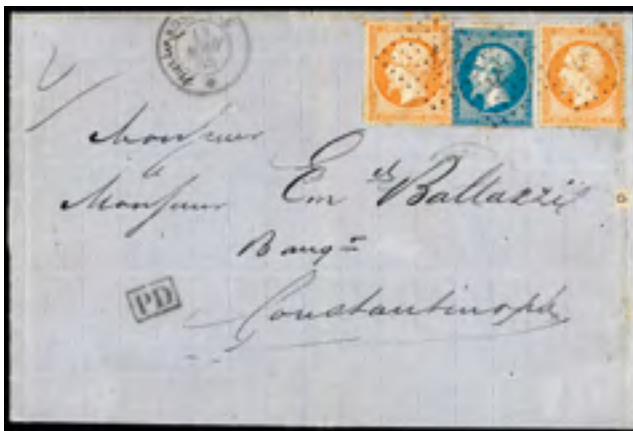 Monsieur
a
Monsieur Em ls Baltazzi
Banqr
Constantinople
PD